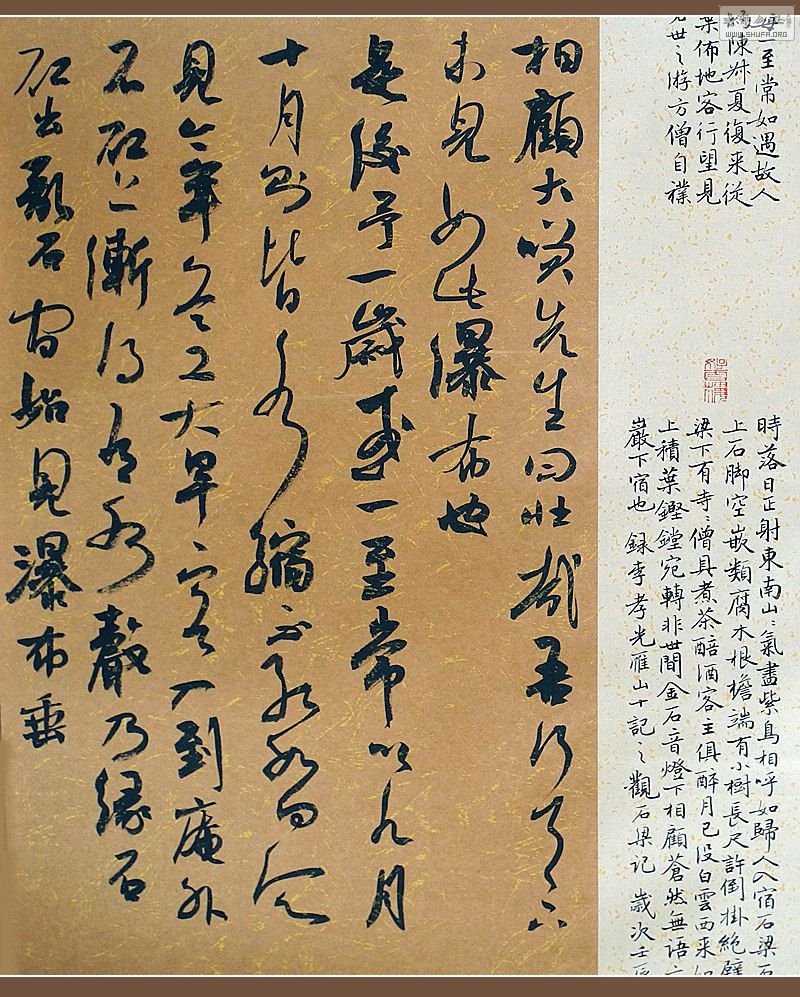 WWW.SHUFA.ORG
一至常如遇故人
陳叔夏復來從
葉佈地客行望見
世之游方僧自樸
時落日正射東南山〻氣盡紫鳥相呼如歸人入宿石梁石
上石脚空嵌類腐木根檐端有小樹長尺許倒掛絕壁
梁下有寺〻僧具煮茶醅酒客主俱醉月已没白雲西來如
上積葉鏗鏜宛轉非世間金石音燈下相顧蒼然無語
巖下宿也錄李孝光雁山十記之觀石梁記 歲次壬辰
相顧大笑先生曰壯哉吾行天下
未見如此瀑布也
是後予一歲或一至常以九月
十月則皆水縮不能如向所
見今年冬又大旱客入到庵外
石矼上漸聞有水聲乃緣石
矼出亂石間始見瀑布垂